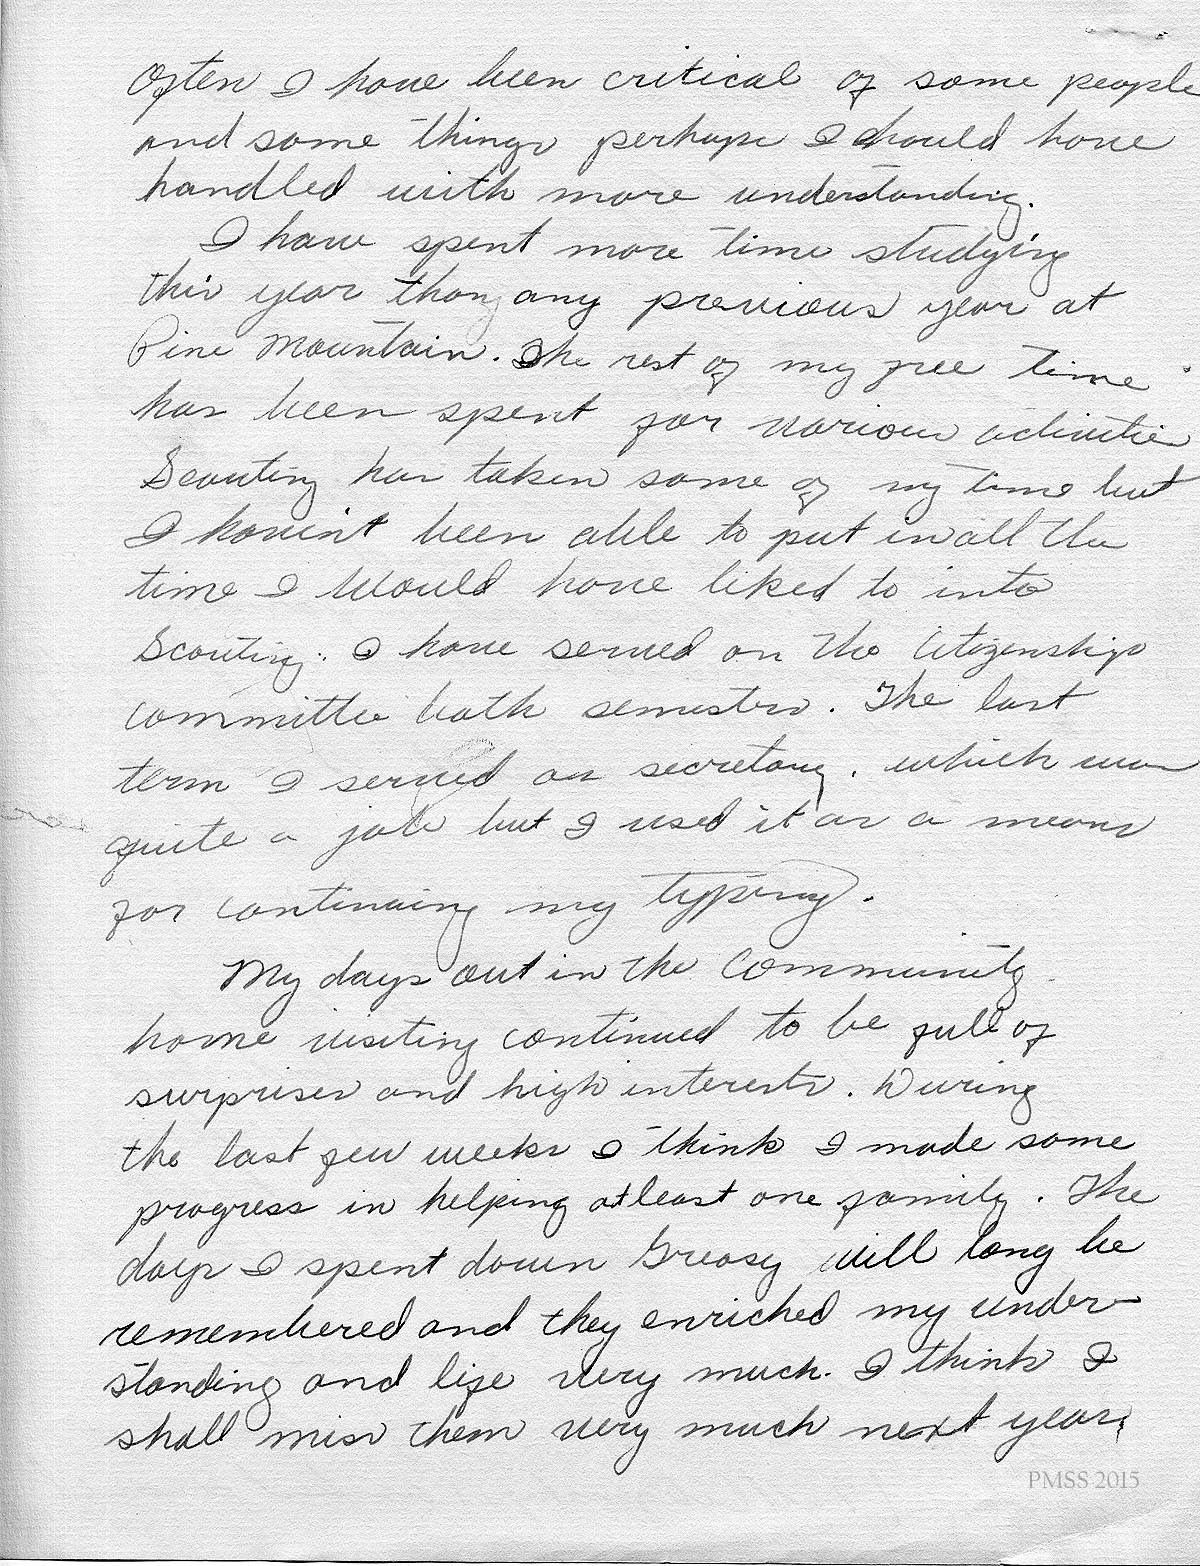 Often I have been critical of some people
and some things perhaps I should have
handled with more understanding.
I have spent more time studying
this year than any previous year at
Pine Mountain. The rest of my free time
has been spent for various activities
Scouting has taken some of my time but
I havin't been able to put in all the
time I would have liked to into
Scouting. I have served on the Citizenship
committee both semesters. The last
term I served as secretary. which was
quite a job but I used it as a means
for continuing my typing.
My days out in the Community
home visiting continued to be full of
surprises and high interests. During
the last few weeks I think I made some
progress in helping atleast one family. The
days I spent down Greasy will long be
remembered and they enriched my under-
standing and life very much. I think I
shall miss them very much next year.
PMSS 2015